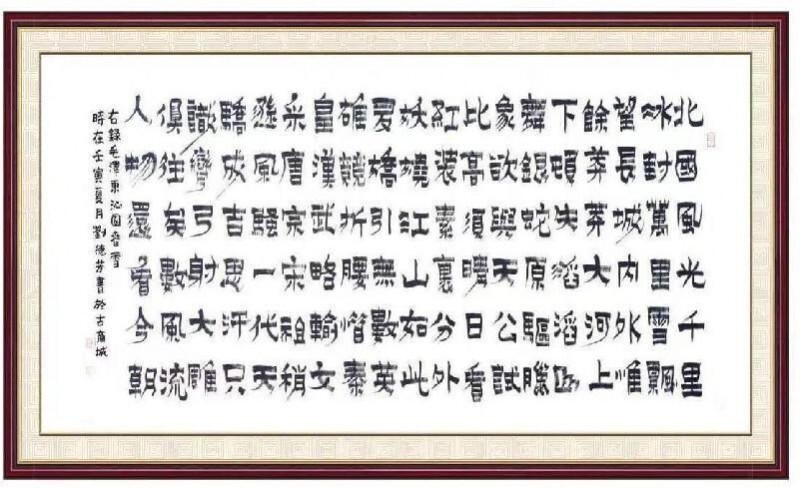 北國風光千里
冰封萬里雪飄
望長城內外惟
餘莽莽大河上
下頓失滔滔山
舞銀蛇原驅臘
象欲與天公試
比高須晴日看
紅裝素裹分外
妖嬈江山如此
多嬌引無數英
雄競折腰惜秦
皇漢武略輸文
采唐宗宋祖稍
遜風騷一代天
驕成吉思汗只
識彎弓射大雕
俱往矣數風流
人物還看今朝
右錄毛澤東沁園春雪
時在壬寅夏月劉德芳書於古商城